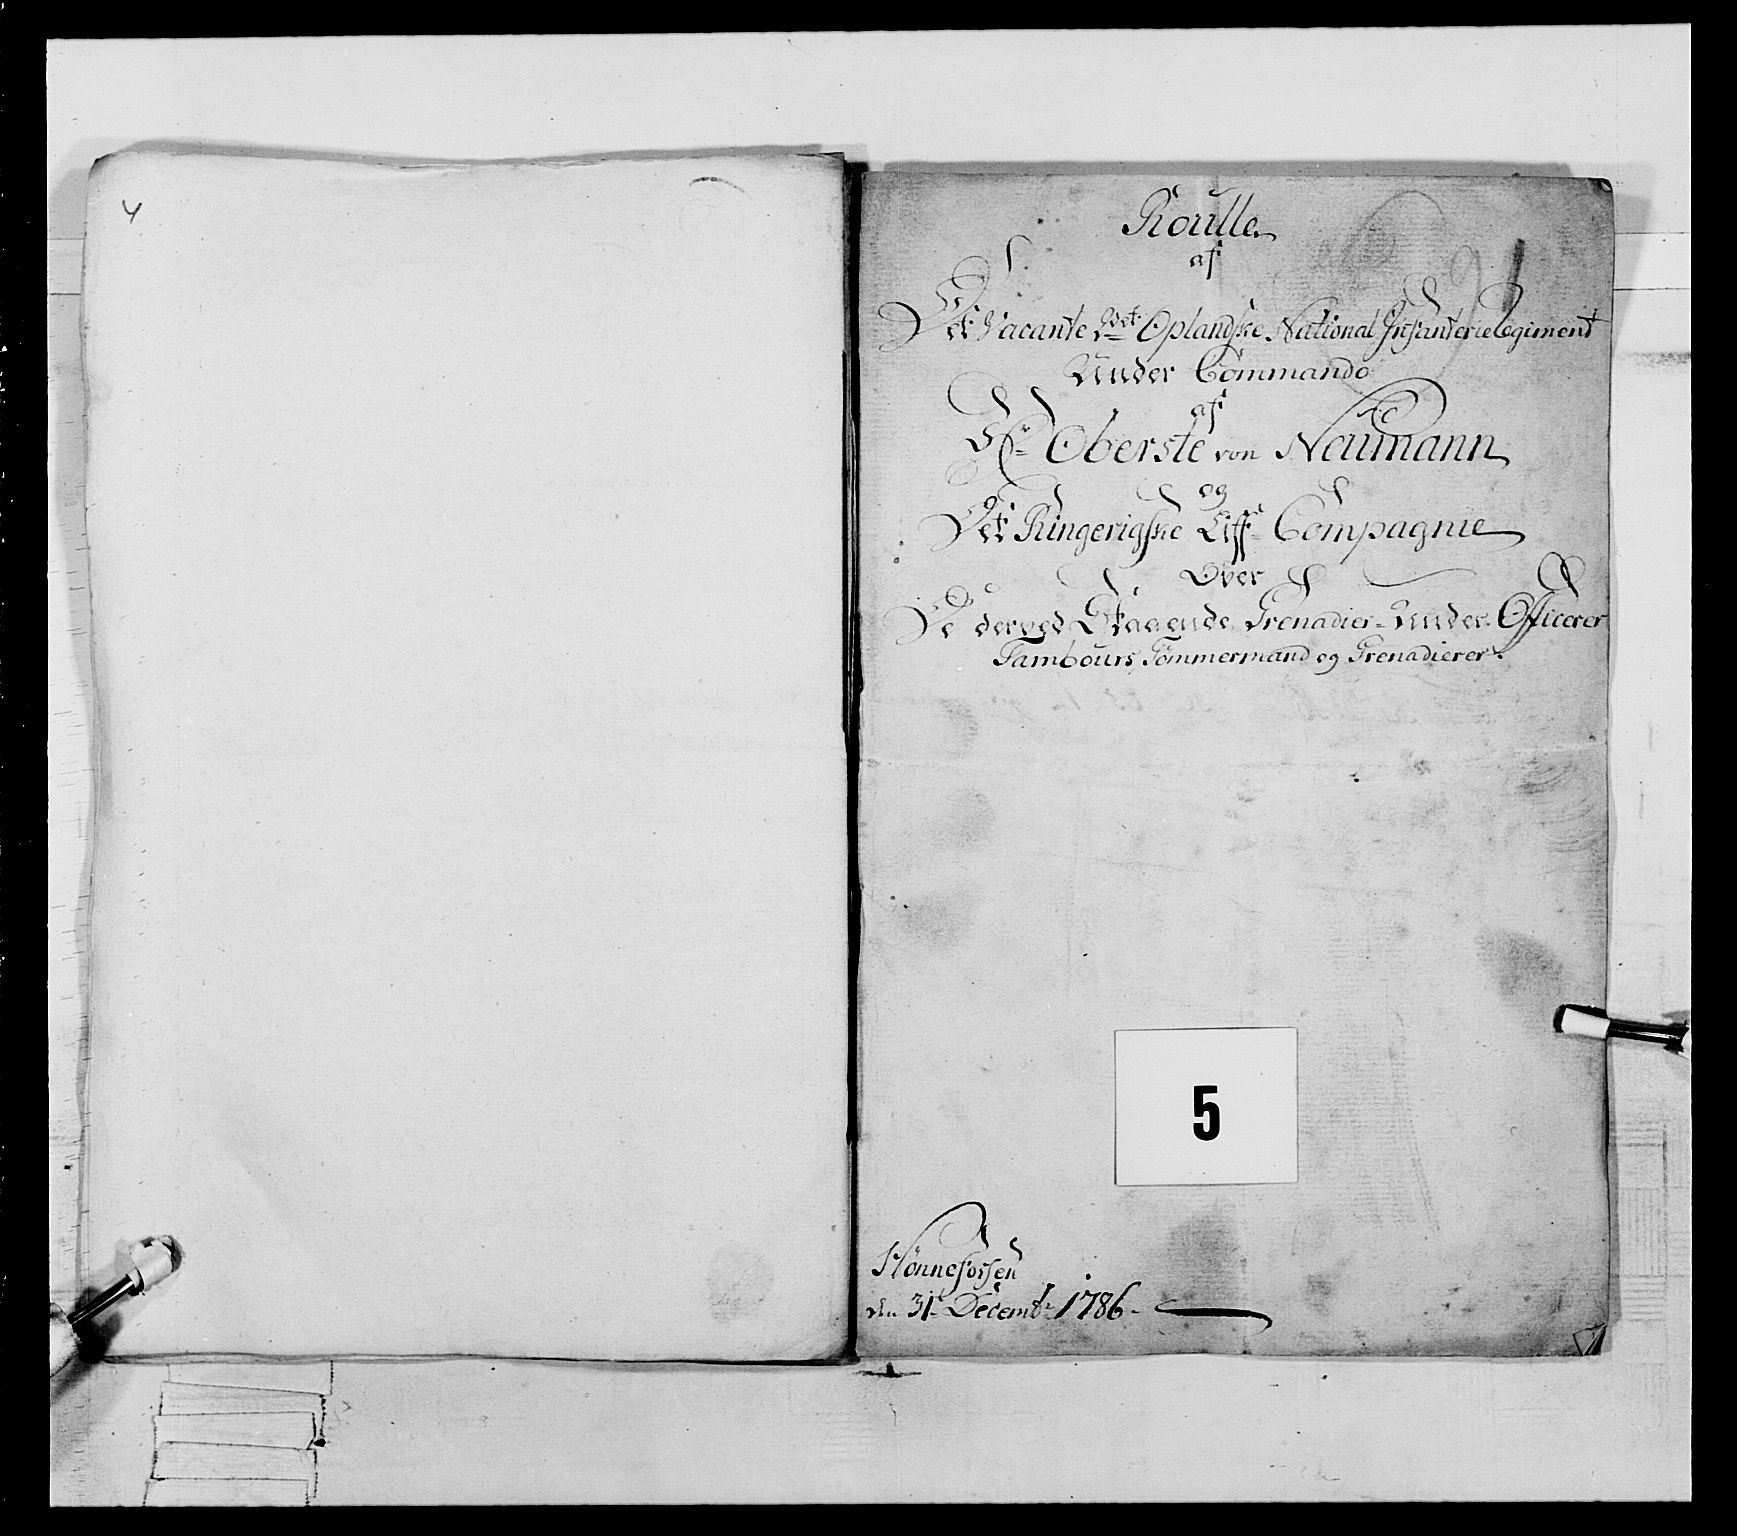 4
Roulle
af
Det Vacante 2det Oplandske National Infanterie Regiment
Under Commando
af
Hr Oberste von Neumann
og
Det Ringerigske Liff Compagnie
Over
De derved Staaende Grenadier-Under Officerer
Tambours, Tømmermand og Grenadierer.
5
Hønneforsen
den 31te Decembr 1786.